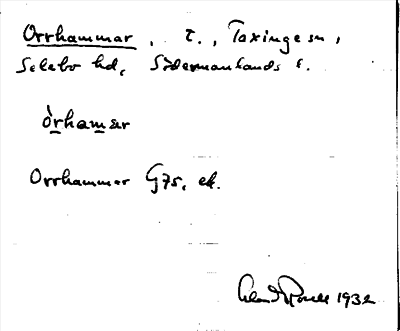 Orrhammar, t., Taxinge sn,
Selebo hd, Södermanlands l.
òrhamar
Orrhammar G75, ek.
1932